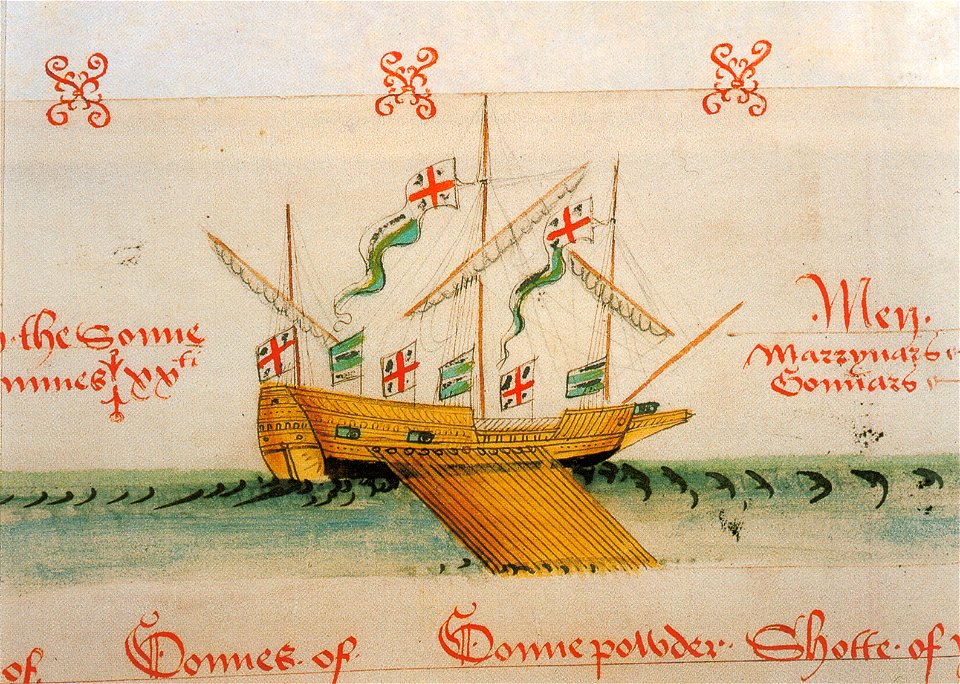 the Sonne
xx ti
·Men·
Marrynars
Gonnars
of Gonnes · of Gonnepowder · Shotte · of